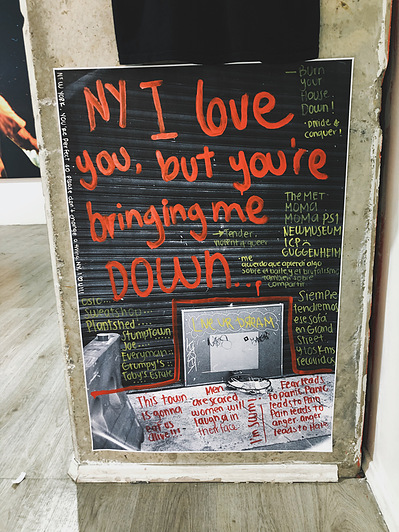 NY I love
you, but you're
bringing me
DOWN...
NEW YORK, YOU'RE PERFECT
Burn
your
House
Down!
· Divide &
conquer!
Tender,
THE MET
MOMA
MOMA PS1
NEW MUSEUM
ICP
GUGGENHEIM
· me
acuerdo que aprendí algo
sobre el baile y el brutalismo,
también sobre
compartir
OSLO...
Sweatshop...
Plantshed...
Stumptown
Joe...
Everyman...
Grumpy's...
Toby's Estate
Siempre
tendremos
ese sofá
en Grand
Street
y los kms
recorridos
DREAM
This town
is gonna
eat us
alive...
Men
are scared
women will
laugh
in
their face
Fear leads
to panic, Panic
leads to Pain
Pain leads to
anger, anger
leads to Hate